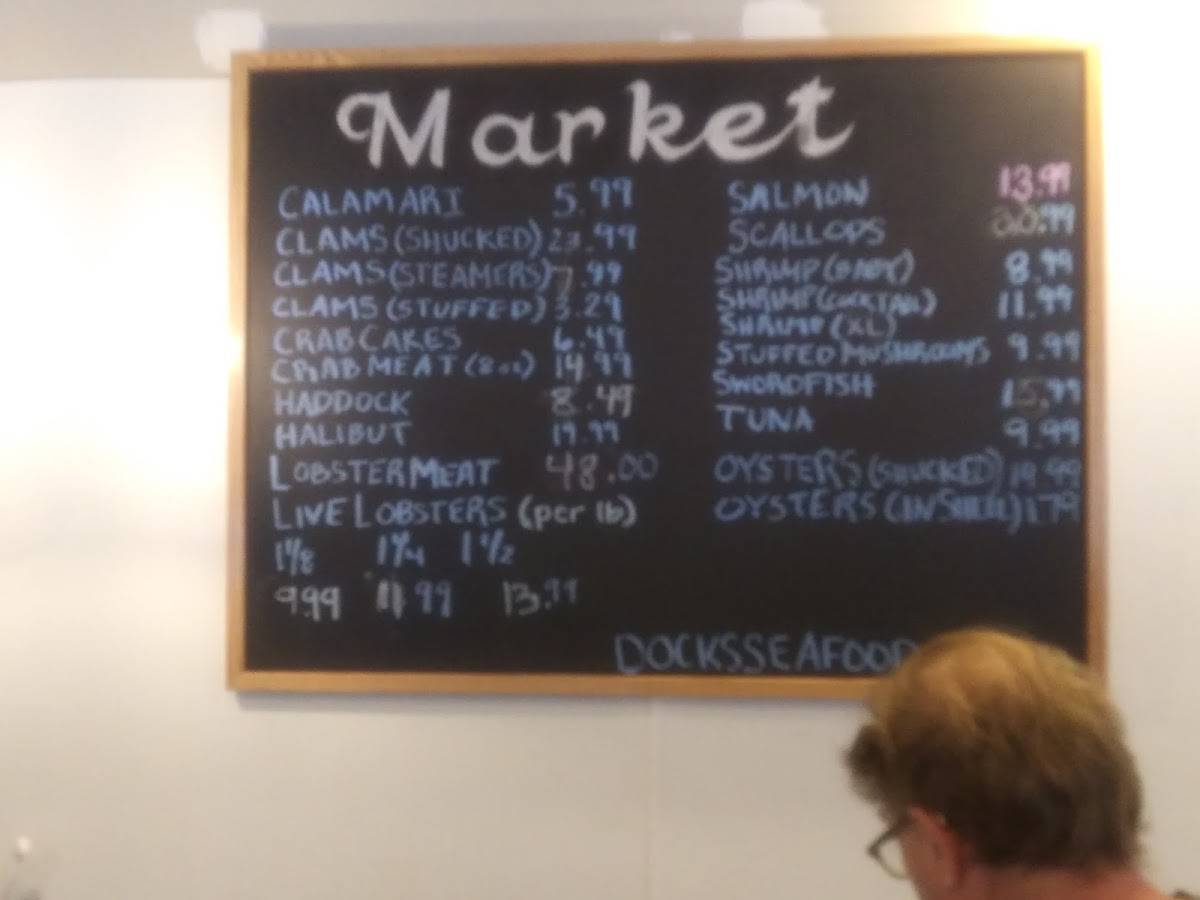 Market
CALAMARI 5.99
CLAMS (SHUCKED) 23.99
CLAMS (STEAMERS) 7.99
CLAMS (STUFFED) 3.29
CRABCAKES 6.49
CRABMEAT (8oz) 14.99
HADDOCK 8.49
HALIBUT 19.99
LOBSTERMEAT 48.00
LIVE LOBSTERS (per lb)
1 1/8 1 1/4 1 1/2
9.99 11.99 13.99
SALMON 13.99
SCALLOPS 20.99
SHRIMP (BABY) 8.99
SHRIMP (COCKTAIL) 11.99
SHRIMP (XL)
STUFFED MUSHROOMS 9.99
SWORDFISH 15.99
TUNA 9.99
OYSTERS (SHUCKED) 19.99
OYSTERS (IN SHELL) 1.79
DOCKSSEAFOOD